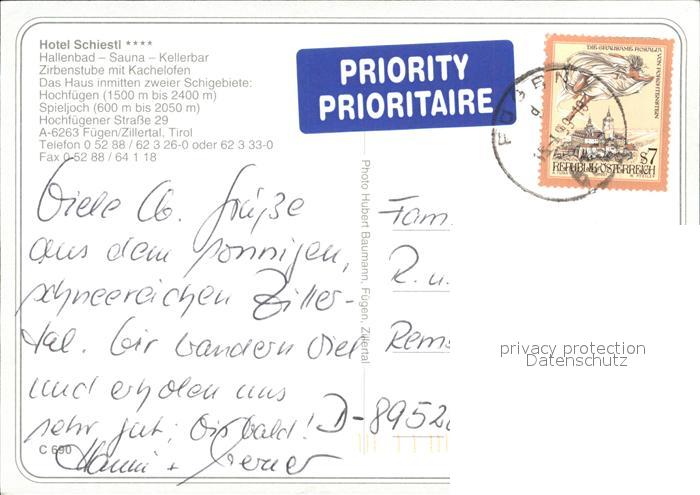 Hotel Schiestl ****
Hallenbad – Sauna – Kellerbar
Zirbenstube mit Kachelofen
Das Haus inmitten zweier Schigebiete:
Hochfügen (1500 m bis 2400 m)
Spieljoch (600 m bis 2050 m)
Hochfügener Straße 29
A-6263 Fügen/Zillertal, Tirol
Telefon 0 52 88 / 62 3 26-0 oder 62 3 33-0
Fax 0 52 88 / 64 1 18
PRIORITY
PRIORITAIRE
DIE GRAUSAME ROSALIA
VON FORCHTENSTEIN
S7
REPUBLIK ÖSTERREICH
Viele lb. Grüße
aus dem sonnigen,
schneereichen Ziller-
tal. Wir wandern viel
und erholen uns
sehr gut; Bis bald!
Hanni + Werner
C 690
Photo Hubert Baumann, Fügen, Zillertal
Fam.
R. u.
Rems
D-8952
privacy protection
Datenschutz